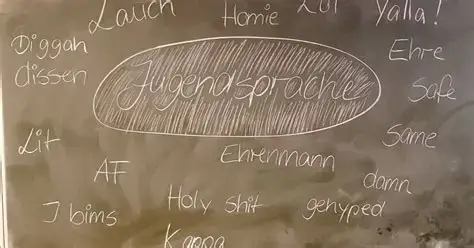 Lauch
Homie
Lol
Yalla!
Diggah
dissen
Jugendsprache
Ehre
Safe
Lit
AF
Ehrenmann
Same
damn
I bims
Holy shit
gehyped
Kappa